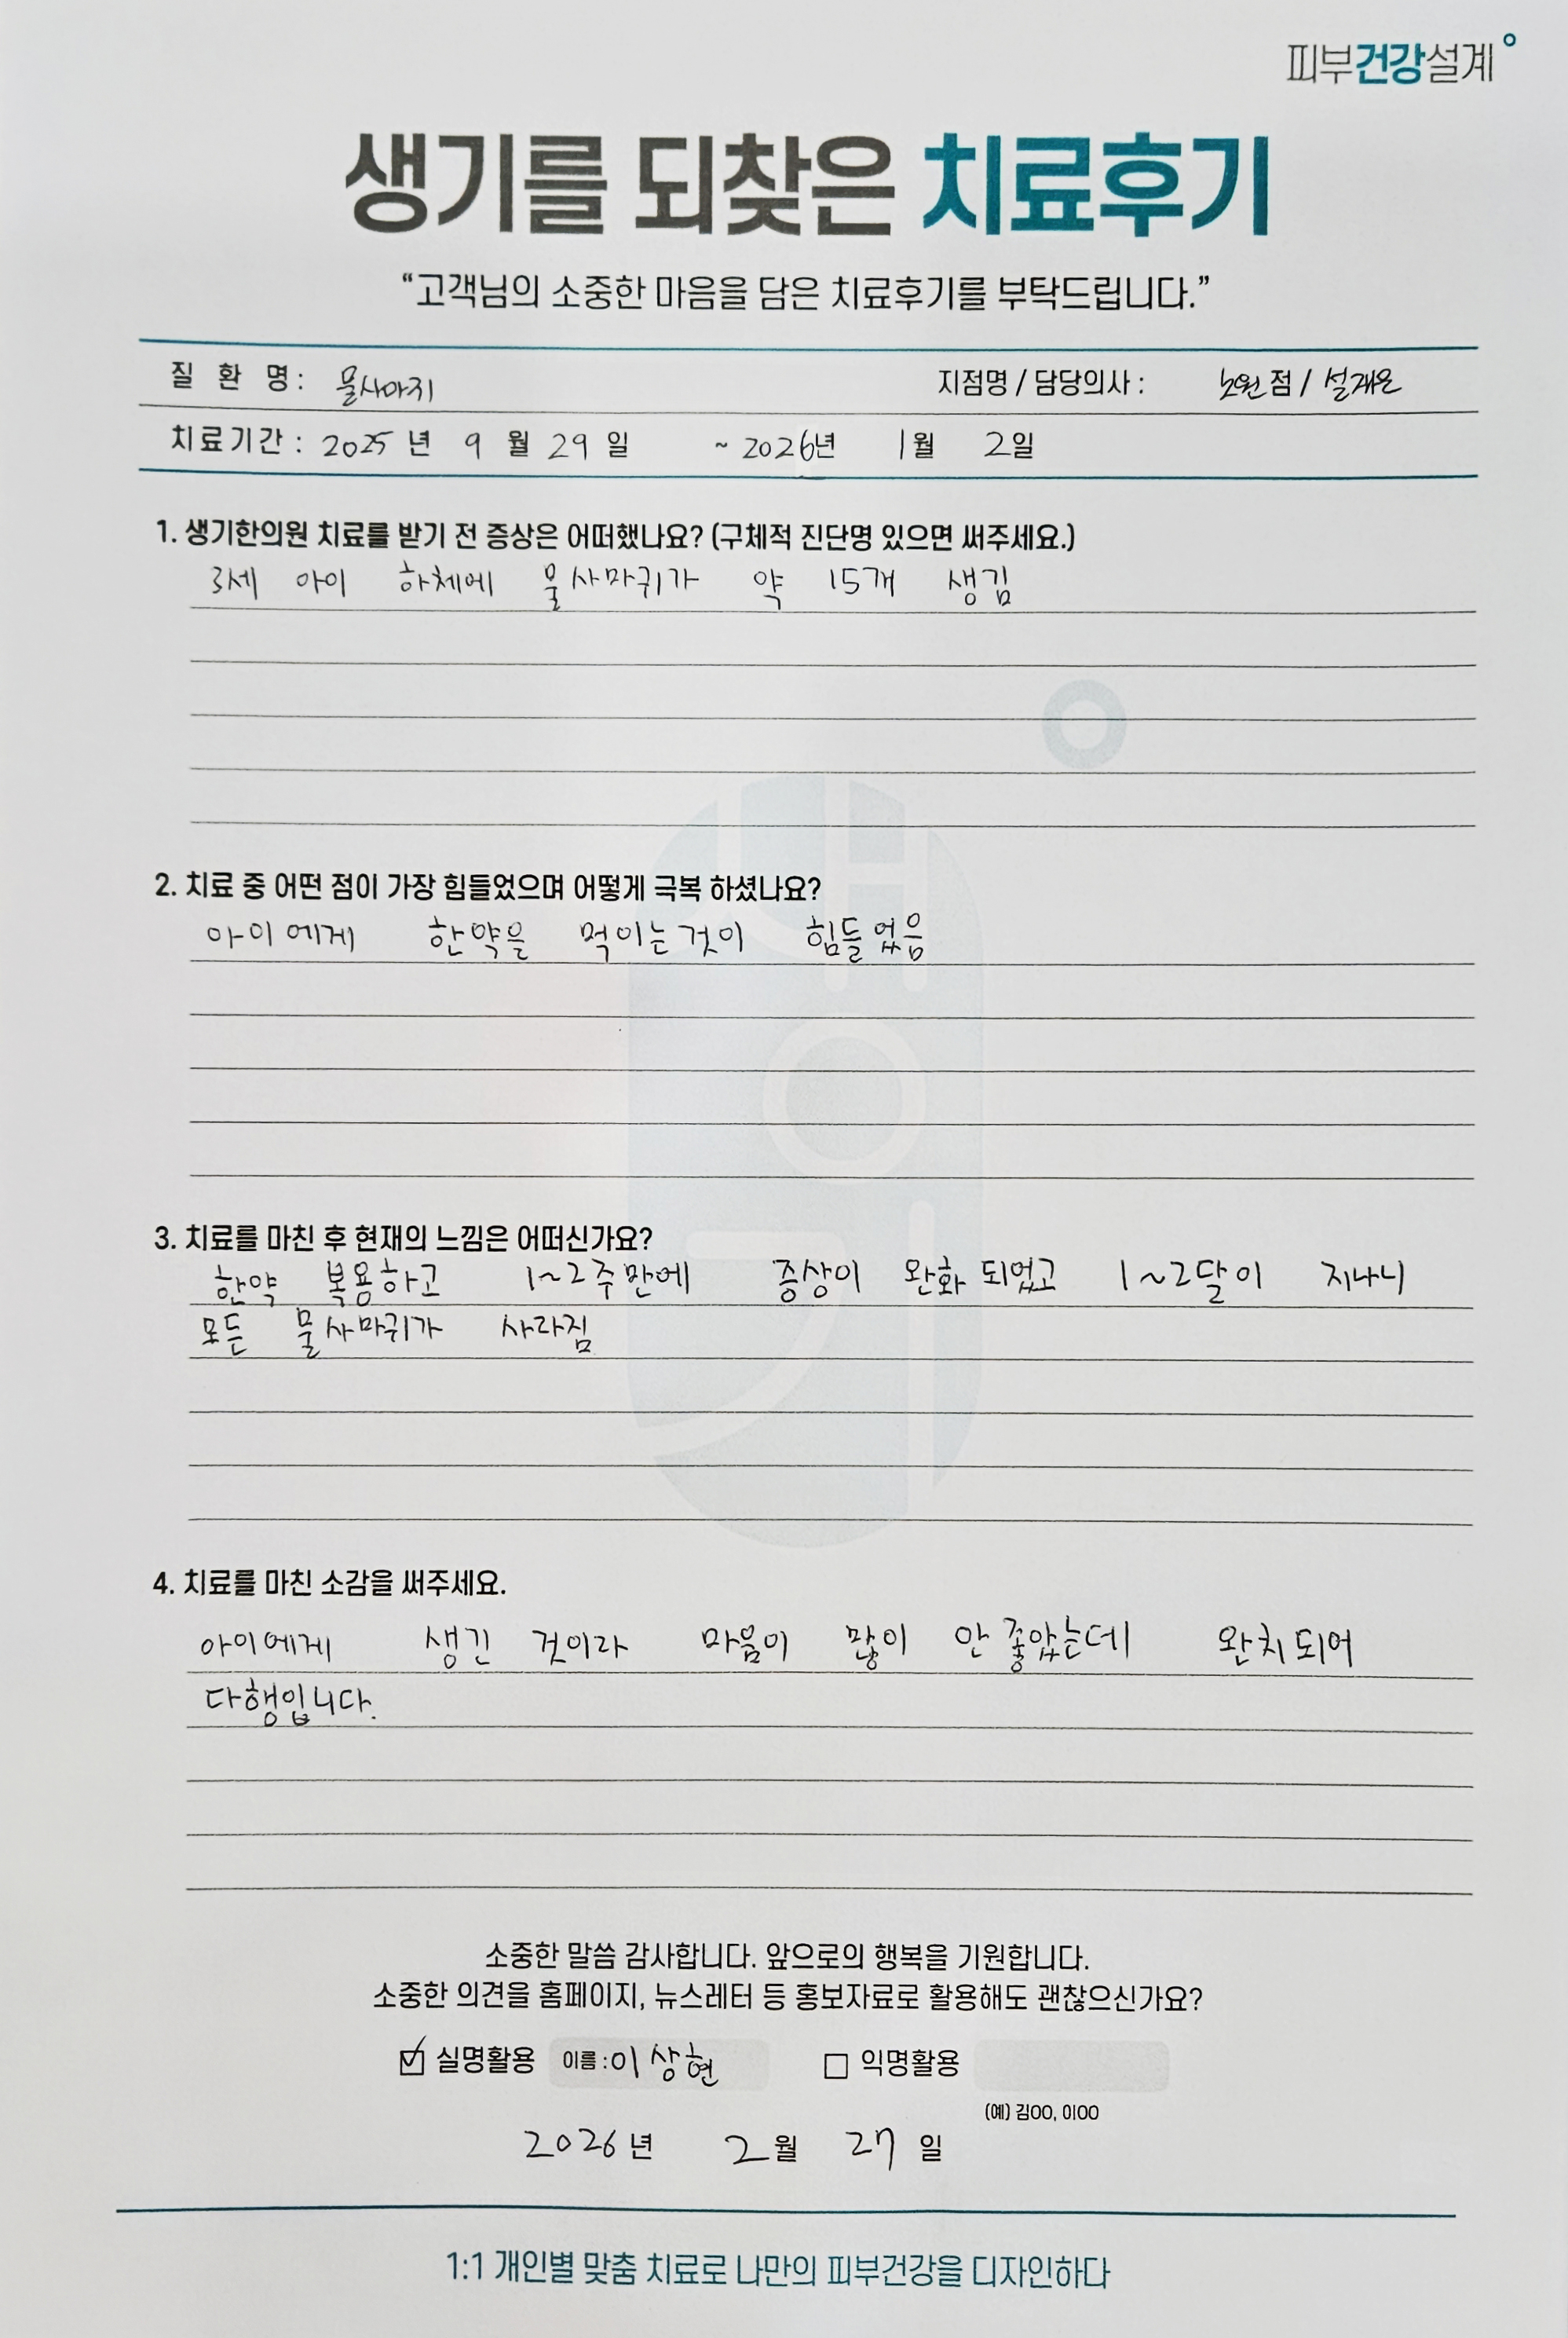 피부건강설계
생기를 되찾은 치료후기
“고객님의 소중한 마음을 담은 치료후기를 부탁드립니다.”
질 환 명 : 물사마귀 지점명 / 담당의사 : 노원점 / 설재은
치료기간 : 2025 년 9 월 29 일 ~ 2026년 1월 2일
1. 생기한의원 치료를 받기 전 증상은 어떠했나요? (구체적 진단명 있으면 써주세요.)
3세 아이 하체에 물사마귀가 약 15개 생김
2. 치료 중 어떤 점이 가장 힘들었으며 어떻게 극복 하셨나요?
아이에게 한약을 먹이는것이 힘들었음
3. 치료를 마친 후 현재의 느낌은 어떠신가요?
한약 복용하고 1~2주만에 증상이 완화 되었고 1~2달이 지나니
모든 물사마귀가 사라짐
4. 치료를 마친 소감을 써주세요.
아이에게 생긴 것이라 마음이 많이 안 좋았는데 완치되어
다행입니다.
소중한 말씀 감사합니다. 앞으로의 행복을 기원합니다.
소중한 의견을 홈페이지, 뉴스레터 등 홍보자료로 활용해도 괜찮으신가요?
실명활용 이름 : 이상현 익명활용
(예) 김OO, 이OO
2026 년 2 월 27 일
1:1 개인별 맞춤 치료로 나만의 피부건강을 디자인하다